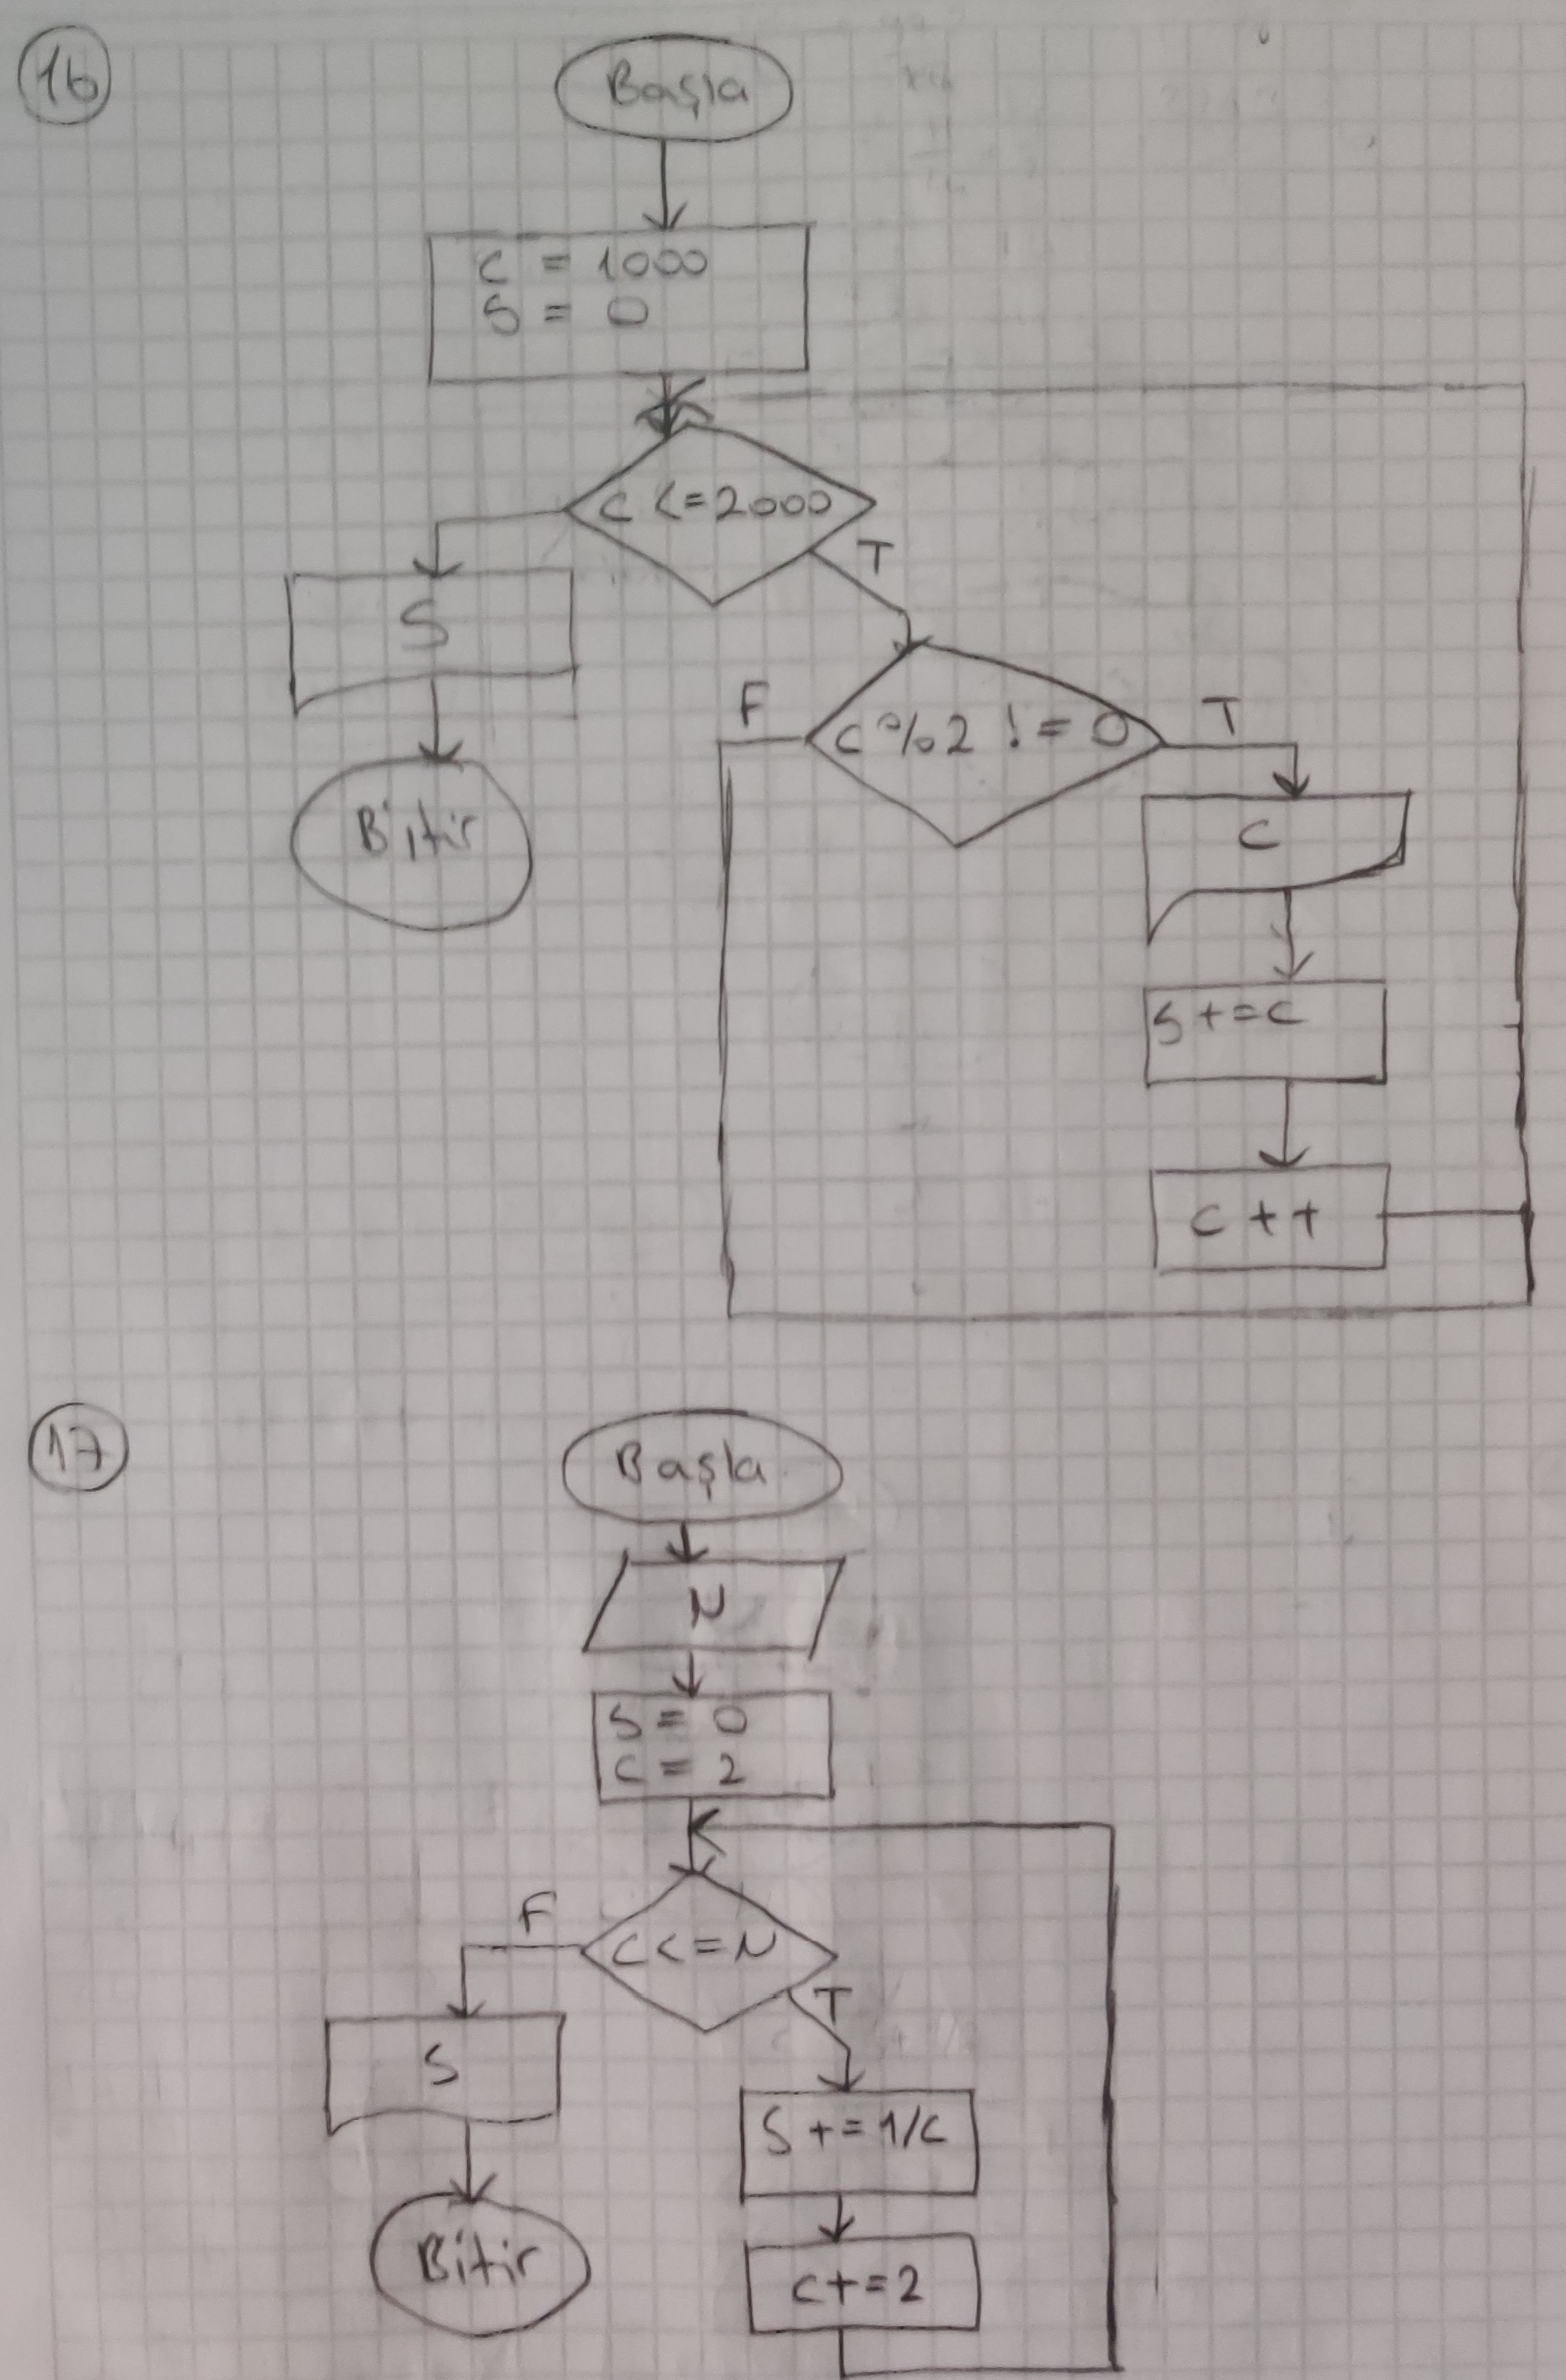 16
Başla
C = 1000
S = 0
C <= 2000
T
S
F
C % 2 != 0
T
Bitir
C
S += C
C ++
17
Başla
N
S = 0
C = 2
F
C <= N
T
S
S += 1/C
Bitir
C += 2